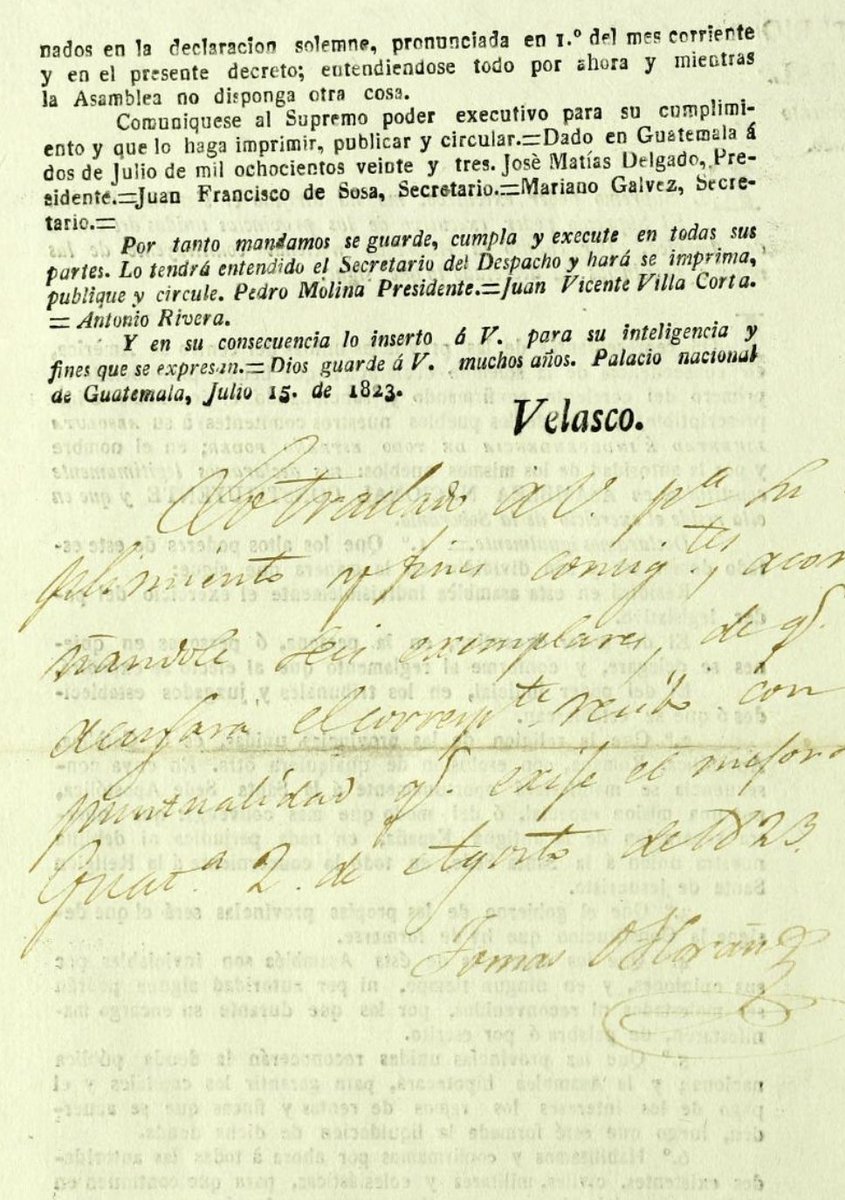 nados en la declaracion solemne, pronunciada en 1.º del mes corriente
y en el presente decreto; entendiendose todo por ahora y mientras
la Asamblea no disponga otra cosa.
Comuniquese al Supremo poder executivo para su cumplimi-
ento y que lo haga imprimir, publicar y circular.=Dado en Guatemala á
dos de Julio de mil ochocientos veinte y tres. Josè Matías Delgado, Pre-
sidente.=Juan Francisco de Sosa, Secretario.=Mariano Galvez, Secre-
tario.=
Por tanto mandamos se guarde, cumpla y execute en todas sus
partes. Lo tendrá entendido el Secretario del Despacho y hará se imprima,
publique y circule. Pedro Molina Presidente.=Juan Vicente Villa Corta.
= Antonio Rivera.
Y en su consecuencia lo inserto á V. para su inteligencia y
fines que se expresan.= Dios guarde á V. muchos años. Palacio nacional
de Guatemala, Julio 15. de 1823.
Velasco.
Lo traslado à V. pª su
plimiento y fines consig.tes, acom
ñandole seis exemplares, de q.
acusara el corresp.te recibo con
puntualidad q. exije el mejor
Guat.ª 2. de Agosto de 1823.
Tomas O Horan